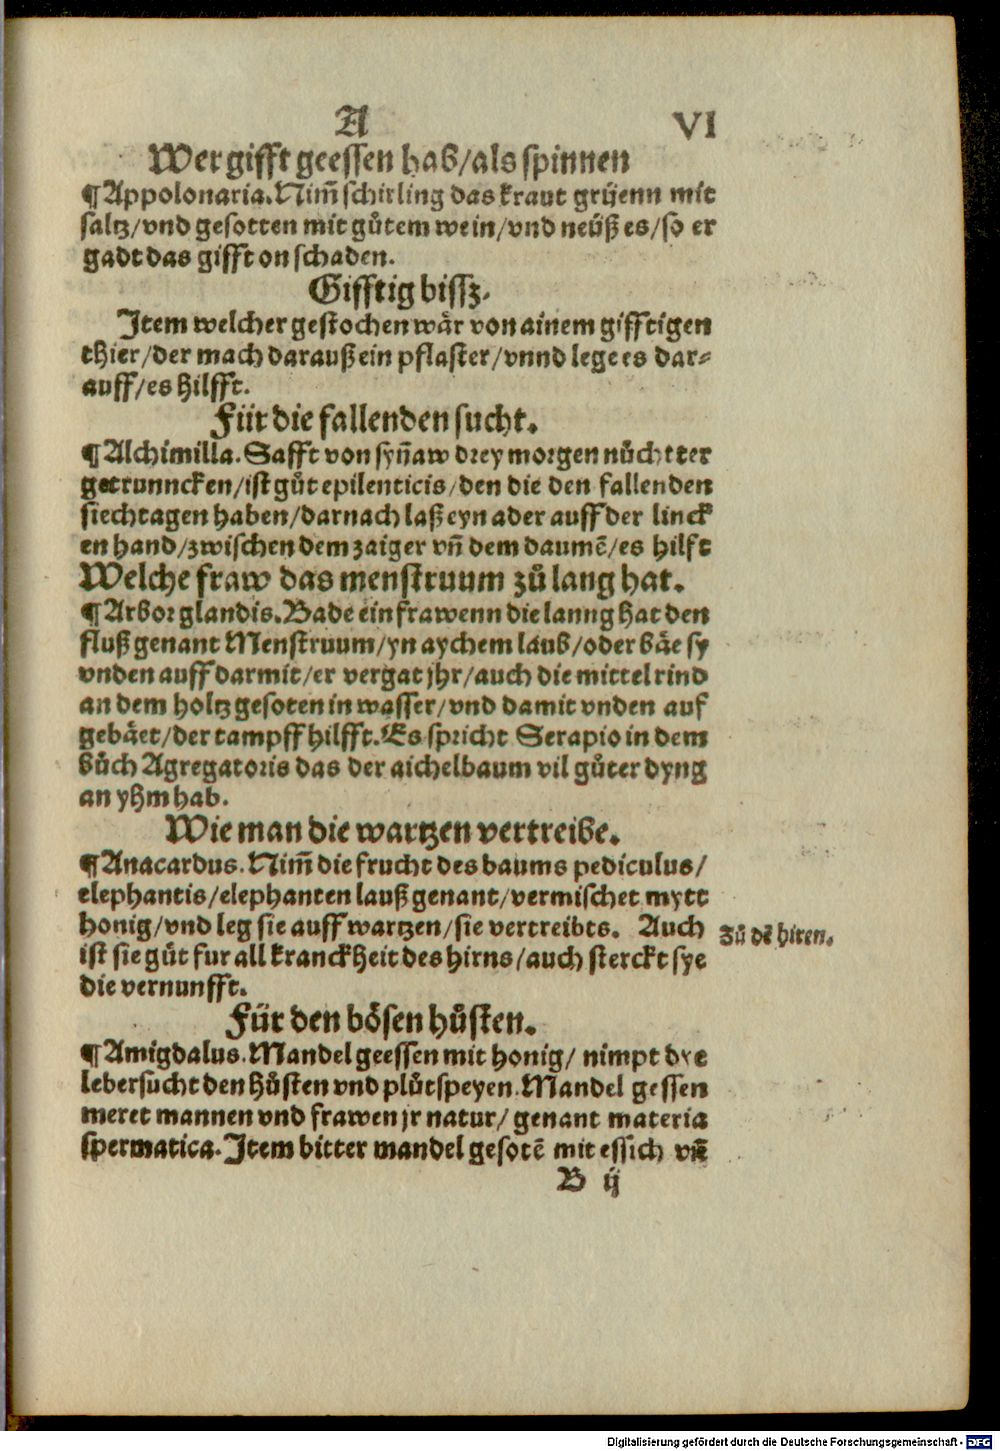 A
VI
Wer gifft geessen hab/als spinnen
¶Appolonaria. Nim̃ schirling das kraut grijenn mit
saltz/vnd gesotten mit gůtem wein/vnd neüß es/so er
gadt das gifft on schaden.
Gifftig bissz.
Item welcher gestochen wär von ainem gifftigen
thier/der mach darauß ein pflaster/vnnd lege es dar⸗
auff/es hilfft.
Für die fallenden sucht.
¶Alchimilla. Safft von syñaw drey morgen nůchtter
getrunncken/ist gůt epilenticis/den die den fallenden
siechtagen haben/darnach laß eyn ader auff der linck
en hand/zwischen dem zaiger vñ dem daumẽ/es hilft
Welche fraw das menstruum zů lang hat.
¶Arbor glandis. Bade ein frawenn die lanng hat den
fluß genant Menstruum/yn aychem laub/oder bäe sy
vnden auff darmit/er vergat jhr/auch die mittel rind
an dem holtz gesoten in wasser/vnd damit vnden auf
gebäet/der tampff hilfft. Es spricht Serapio in dem
bůch Agregatoris das der aichelbaum vil gůter dyng
an yhm hab.
Wie man die wartzen vertreibe.
¶Anacardus. Nim̃ die frucht des baums pediculus/
elephantis/elephanten lauß genant/vermischet mytt
honig/vnd leg sie auff wartzen/sie vertreibts. Auch
ist sie gůt fur all kranckheit des hirns/auch sterckt sye
die vernunfft.
Zů dẽ hiren.
Für den bösen hůsten.
¶Amigdalus. Mandel geessen mit honig/ nimpt dye
lebersucht den hůsten vnd plůtspeyen. Mandel gessen
meret mannen vnd frawen jr natur/ genant materia
spermatica. Item bitter mandel gesotẽ mit essich vñ
B ij
Digitalisierung gefördert durch die Deutsche Forschungsgemeinschaft - DFG